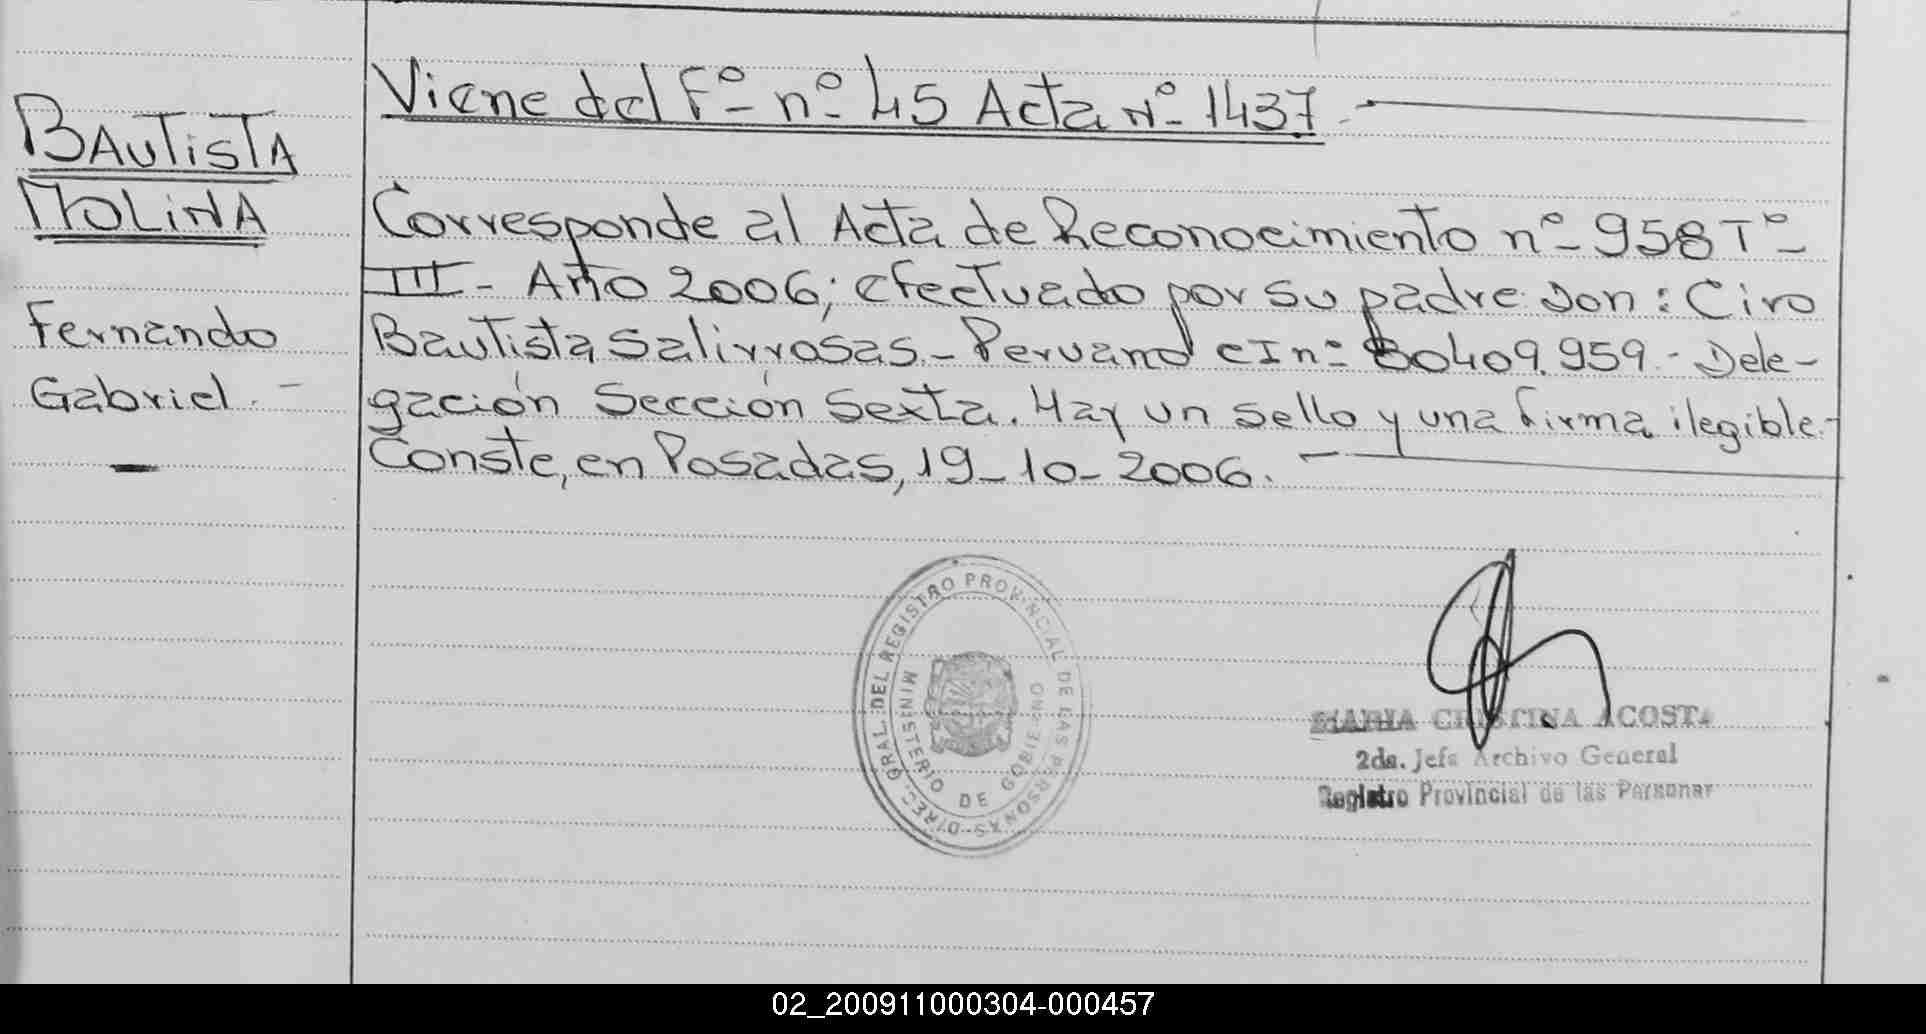 Viene del Fº- nº- 45 Acta Nº- 1437.-
BAUTISTA
MOLINA
Fernando
Gabriel.-
Corresponde al Acta de Reconocimiento nº- 958 Tº-
III- Año 2006; efectuado por su padre Don: Ciro
Bautista Salirrosas.- Peruano CI nº 80409.959.- Dele-
gación Sección Sexta. Hay un sello y una firma ilegible.-
Conste, en Posadas, 19-10-2006.
DIREC. GRAL. DEL REGISTRO PROVINCIAL DE LAS PERSONAS
MINISTERIO DE GOBIERNO
MARIA CRISTINA ACOSTA
2da. Jefa Archivo General
Registro Provincial de las Personas
02_200911000304-000457